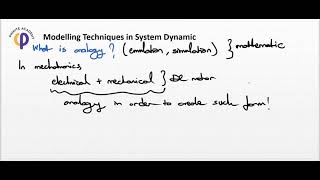 Modelling Techniques in System Dynamic
What is analogy? (emulation, simulation) } mathematic
In mechatronics,
electrical + mechanical } DC motor
analogy in order to create such form!